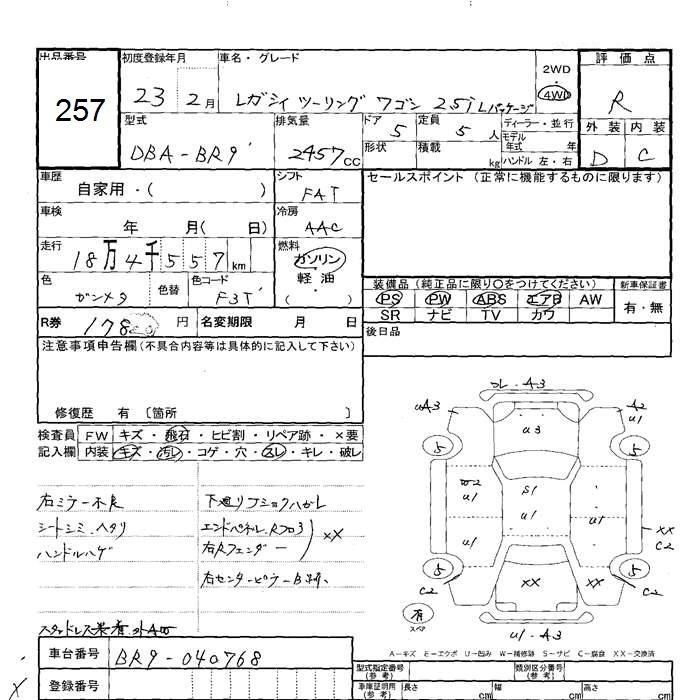 出品番号
257
初度登録年月
23 2月
車名・グレード
レガシィ ツーリング ワゴン 2.5i Lパッケージ
2WD
4WD
評価点
R
外装 内装
D C
型式
DBA-BR9
排気量
2457cc
ドア 5
形状
定員 5人
積載 kg
ディーラー・並行
モデル年式 年
ハンドル 左・右
車歴
自家用・( )
シフト
FAT
車検
年 月( 日)
冷房
AAC
走行
18万4千557km
燃料
ガソリン
軽油
・( )
色
ガンメタ
色替
色コード
F3T
R券 円
名変期限 月 日
セールスポイント (正常に機能するものに限ります)
装備品(純正品に限り〇をつけてください)
PS PW ABS エアB AW
SR ナビ TV カワ
新車保証書
有・無
後日品
注意事項申告欄(不具合内容等は具体的に記入して下さい)
修復歴 有 〔箇所 〕
検査員記入欄
FW キズ・飛石・ヒビ割・リペア跡・×要
内装 キズ・汚レ・コゲ・穴・スレ・キレ・破レ
右ミラー不良
シートシミ、ヘタリ
ハンドルハゲ
下廻り
エンドパネル、Rフロア
右Rフェンダー
XX
右センターピラー
コレ・A3
uA3
A2
u1
u3
5
5
S1
u1
u1
u1
u1
XX
C2
5
5
XX
XX
C2
C2
有
スペア
u1・A3
A-キズ E-エクボ U-凹み W-補修跡 S-サビ C-腐食 XX-交換済
車台番号
BR9-040768
登録番号
型式指定番号(参考)
類別区分番号(参考)
車庫証明用(参考)
長さ cm
幅 cm
高さ cm